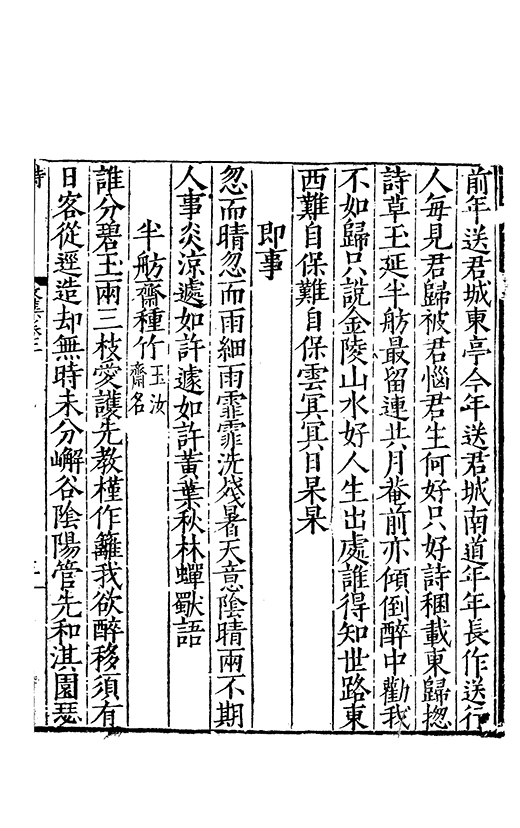 前年送君城東亭今年送君城南道年年長作送行
人每見君歸被君惱君生何好只好詩稛載東歸揔
詩草玉延半舫最留連共月菴前亦傾倒醉中勸我
不如歸只說金陵山水好人生出處誰得知世路東
西難自保難自保雲冥冥日杲杲
即事
忽而晴忽而雨細雨霏霏洗殘暑天意陰晴兩不期
人事炎涼遽如許遽如許黃葉秋林蟬獸語
半舫齋種竹玉汝齋名
誰分碧玉兩三枝愛護先教槿作籬我欲醉移須有
日客從逕造却無時未分嶰谷陰陽管先和淇園瑟